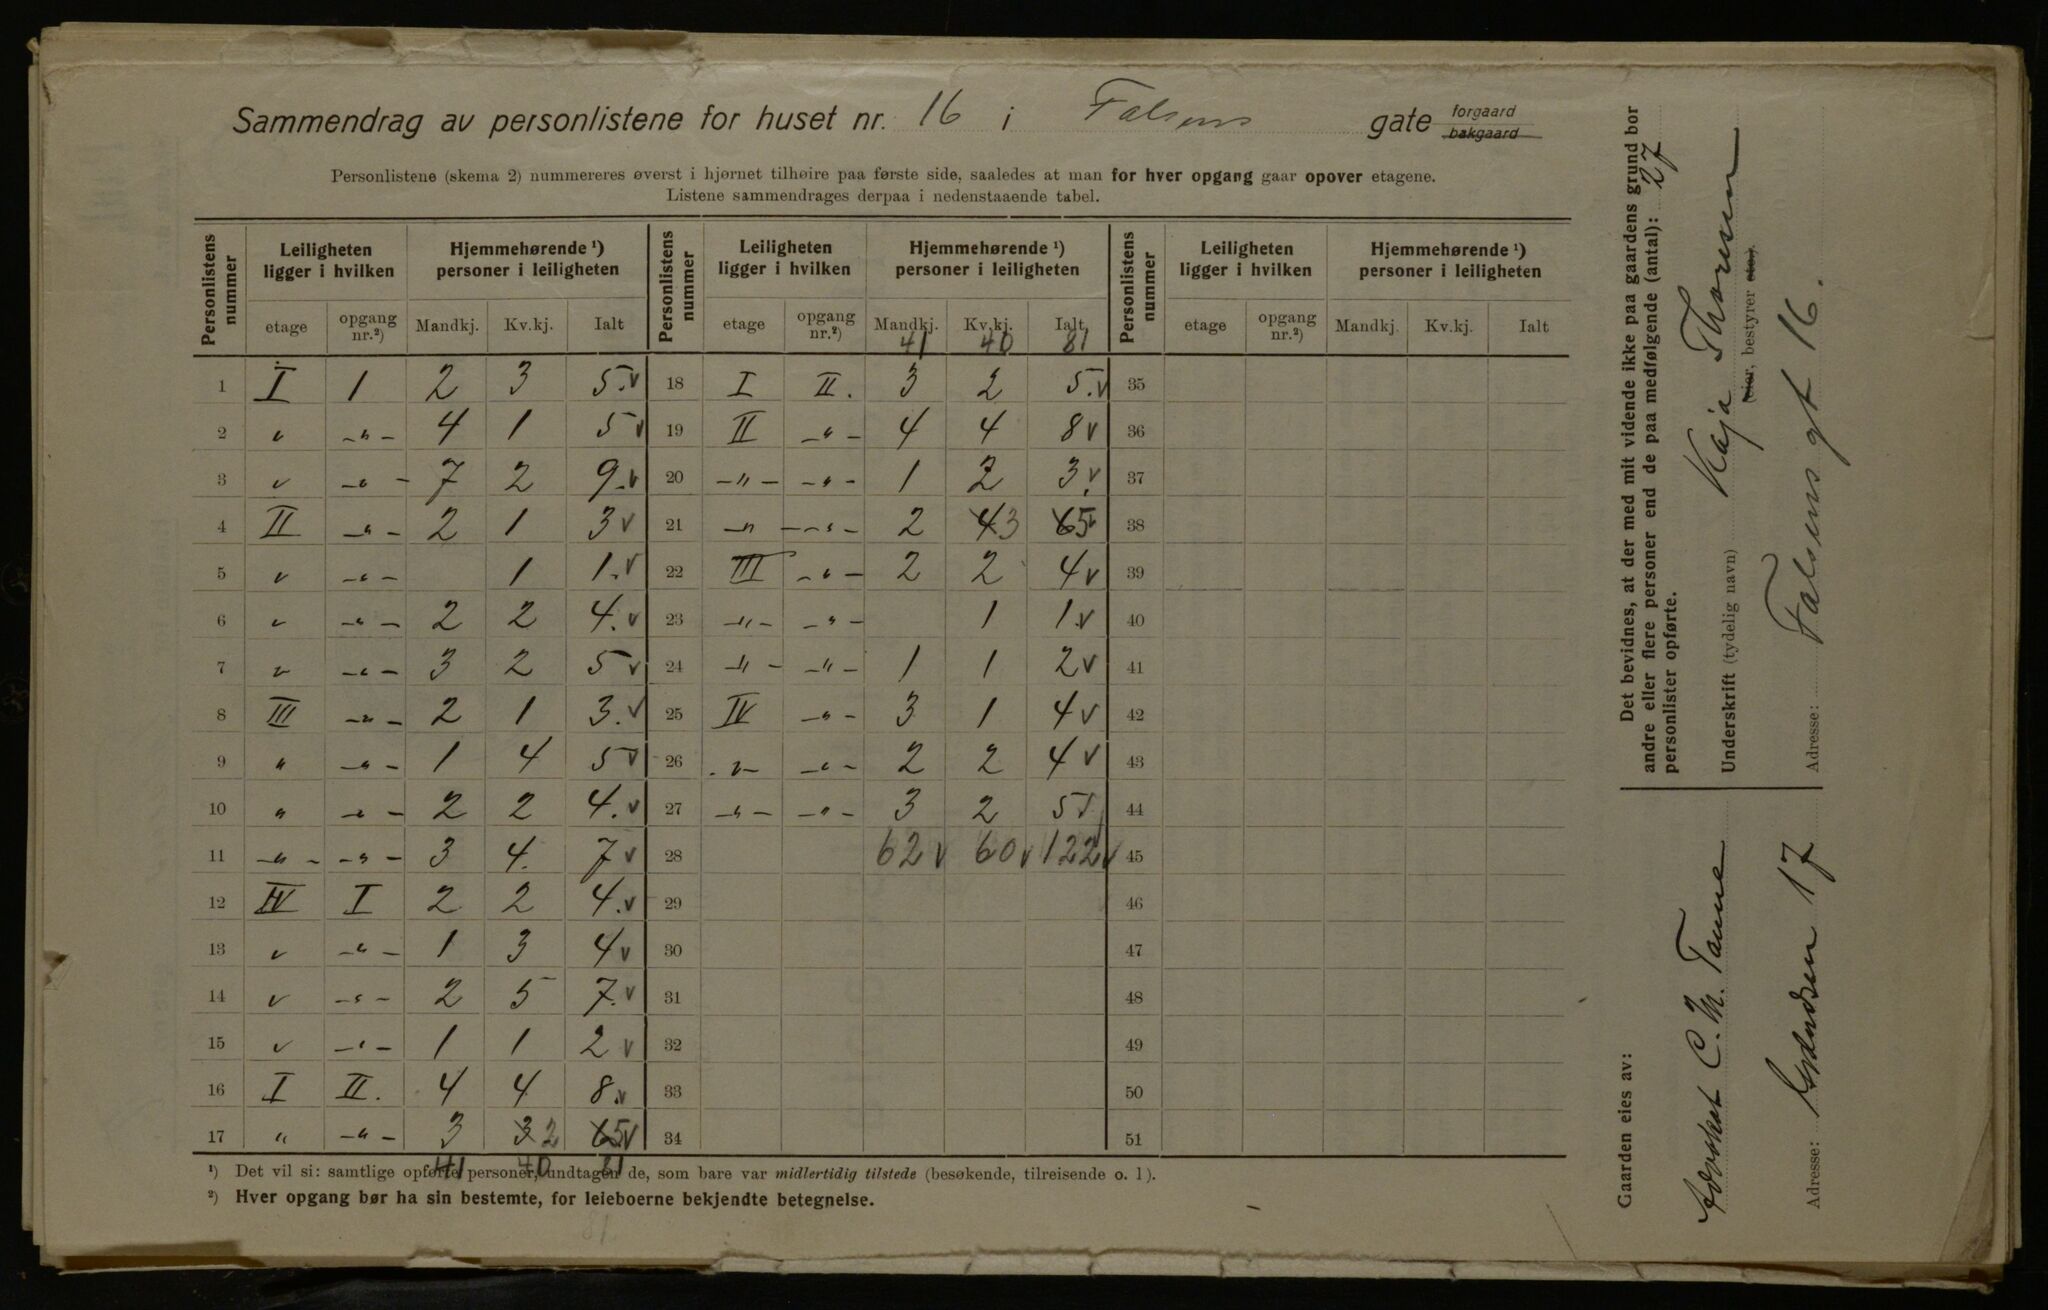 Sammendrag av personlistene for huset nr. 16 i Falsens gate forgaard bakgaard
Personlistene (skema 2) nummereres øverst i hjørnet tilhøire paa første side, saaledes at man for hver opgang gaar opover etagene.
Listene sammendrages derpaa i nedenstaaende tabel.
Personlistens nummer | Leiligheten ligger i hvilken | Hjemmehørende ¹) personer i leiligheten | Personlistens nummer | Leiligheten ligger i hvilken | Hjemmehørende ¹) personer i leiligheten | Personlistens nummer | Leiligheten ligger i hvilken | Hjemmehørende ¹) personer i leiligheten
etage | opgang nr.²) | Mandkj. | Kv.kj. | Ialt | etage | opgang nr.²) | Mandkj. | Kv.kj. | Ialt | etage | opgang nr.²) | Mandkj. | Kv.kj. | Ialt
41 40 81
1 I 1 2 3 5.v 18 I II. 3 2 5.v 35
2 " -"- 4 1 5v 19 II -"- 4 4 8v 36
3 " -"- 7 2 9.v 20 -"- -"- 1 2 3.v 37
4 II -"- 2 1 3v 21 -"- -"- 2 4 3 6 5v 38
5 " -"- 1 1.v 22 III -"- 2 2 4v 39
6 " -"- 2 2 4.v 23 -"- -"- 1 1.v 40
7 " -"- 3 2 5v 24 -"- -"- 1 1 2v 41
8 III -"- 2 1 3.v 25 IV -"- 3 1 4v 42
9 " -"- 1 4 5v 26 -"- -"- 2 2 4v 43
10 " -"- 2 2 4.v 27 -"- -"- 3 2 5v 44
11 -"- -"- 3 4. 7v 28 62v 60v 122v 45
12 IV I 2 2 4.v 29 46
13 " -"- 1 3 4v 30 47
14 " -"- 2 5 7.v 31 48
15 " -"- 1 1 2v 32 49
16 I II. 4 4 8.v 33 50
17 " -"- 3 3 2 6 5v 34 51
41 40 81
¹) Det vil si: samtlige opførte personer, undtagen de, som bare var midlertidig tilstede (besøkende, tilreisende o. l).
²) Hver opgang bør ha sin bestemte, for leieboerne bekjendte betegnelse.
81
Det bevidnes, at der med mit vidende ikke paa gaardens grund bor
andre eller flere personer end de paa medfølgende (antal): 27
personlister opførte.
Underskrift (tydelig navn) Kaja Thoresen
(eier, bestyrer etc).
Adresse: Falsens gt 16.
Gaarden eies av:
Advokat C. M.
Adresse: 17